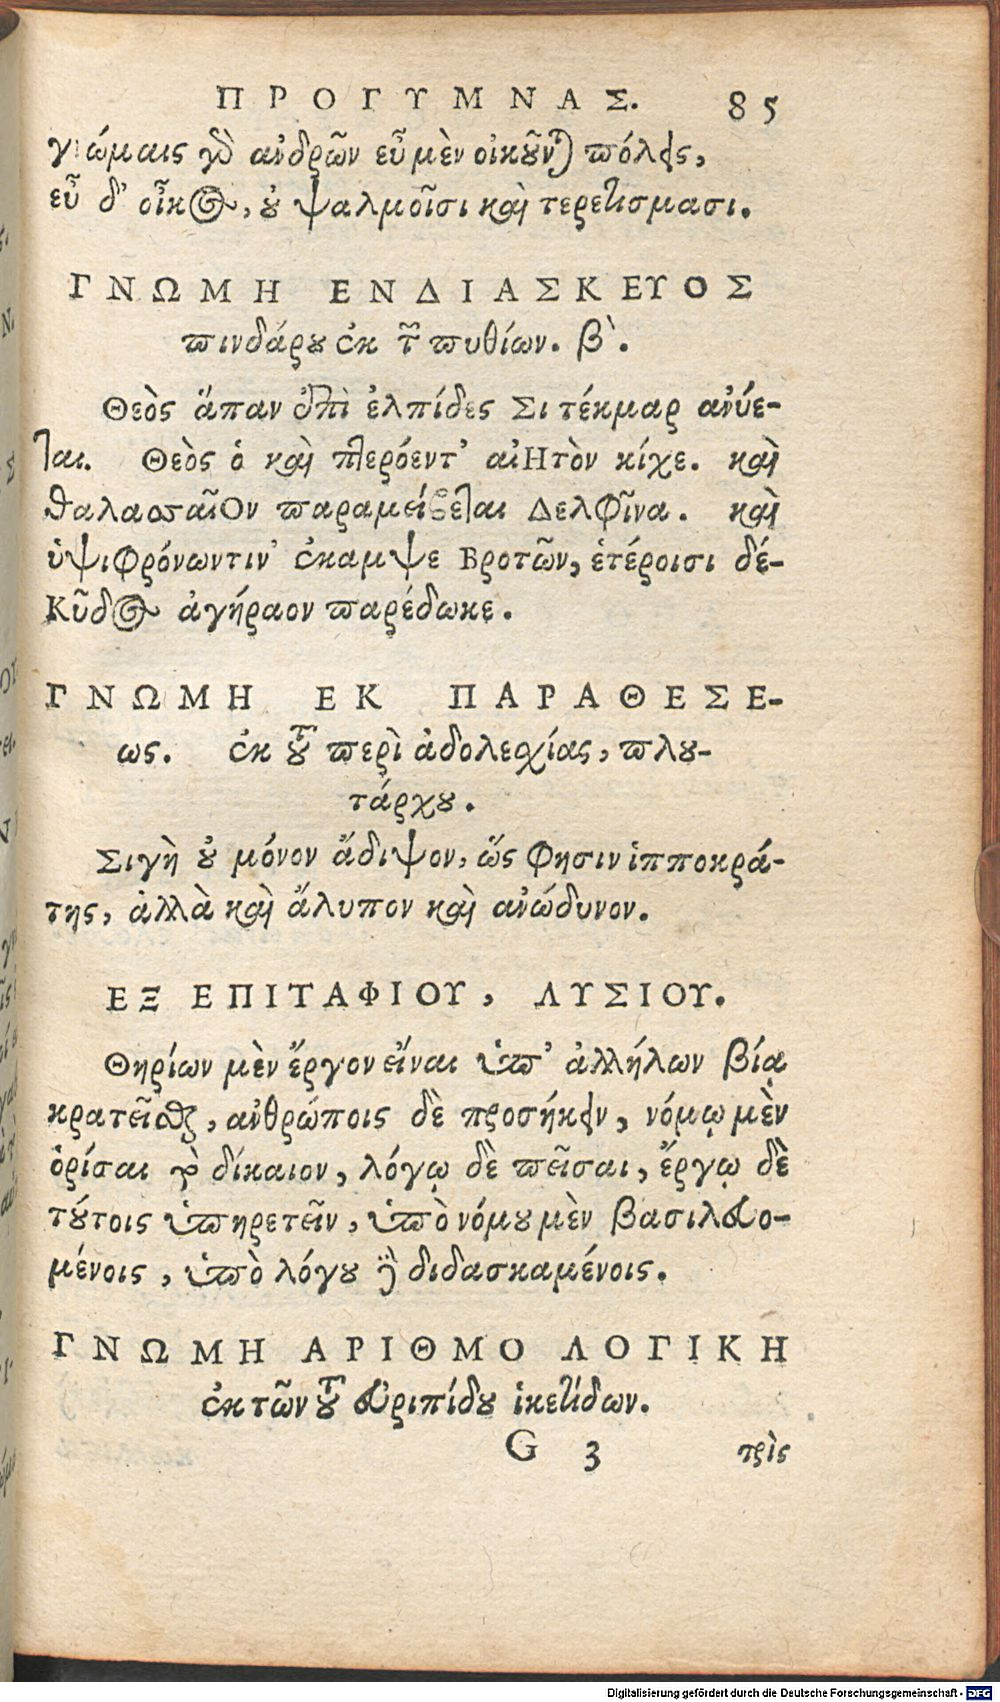 ΠΡΟΓΥΜΝΑΣ. 85
γνώμαις γὸ ἀνδρῶν εὖ μὲν οἰκοῦνται πόλεις,
εὖ δ' οἶκος, οὐ ψαλμοῖσι καὶ τερετίσμασι.
ΓΝΩΜΗ ΕΝΔΙΑΣΚΕΥΟΣ
πινδάρου ἐκ τῶν πυθίων. β'.
Θεὸς ἅπαν ἐπὶ ἐλπίδεσσι τέκμαρ ἀνύε-
ται. Θεὸς ὁ καὶ πτερόεντ' αἰητὸν κίχε. καὶ
θαλασσαῖον παραμείβεται Δελφῖνα. καὶ
ὑψιφρόνωντιν' ἔκαμψε Βροτῶν, ἑτέροισι δέ-
Κῦδος ἀγήραον παρέδωκε.
ΓΝΩΜΗ ΕΚ ΠΑΡΑΘΕΣΕ-
ως. ἐκ τοῦ περὶ ἀδολεχίας, πλου-
τάρχου.
Σιγὴ οὐ μόνον ἄδιψον, ὥς φησιν ἱπποκρά-
της, ἀλλὰ καὶ ἄλυπον καὶ ἀνώδυνον.
ΕΞ ΕΠΙΤΑΦΙΟΥ, ΛΥΣΙΟΥ.
Θηρίων μὲν ἔργον εἶναι ὑπ' ἀλλήλων βίᾳ
κρατεῖσθαι, ἀνθρώποις δὲ προσήκειν, νόμῳ μὲν
ὁρίσαι τὸ δίκαιον, λόγῳ δὲ πεῖσαι, ἔργῳ δὲ
τούτοις ὑπηρετεῖν, ὑπὸ νόμου μὲν βασιλευο-
μένοις, ὑπὸ λόγου δὲ διδασκαμένοις.
ΓΝΩΜΗ ΑΡΙΘΜΟ ΛΟΓΙΚΗ
ἐκ τῶν τοῦ εὐριπίδου ἱκετίδων.
G 3 τρὶς
Digitalisierung gefördert durch die Deutsche Forschungsgemeinschaft - DFG